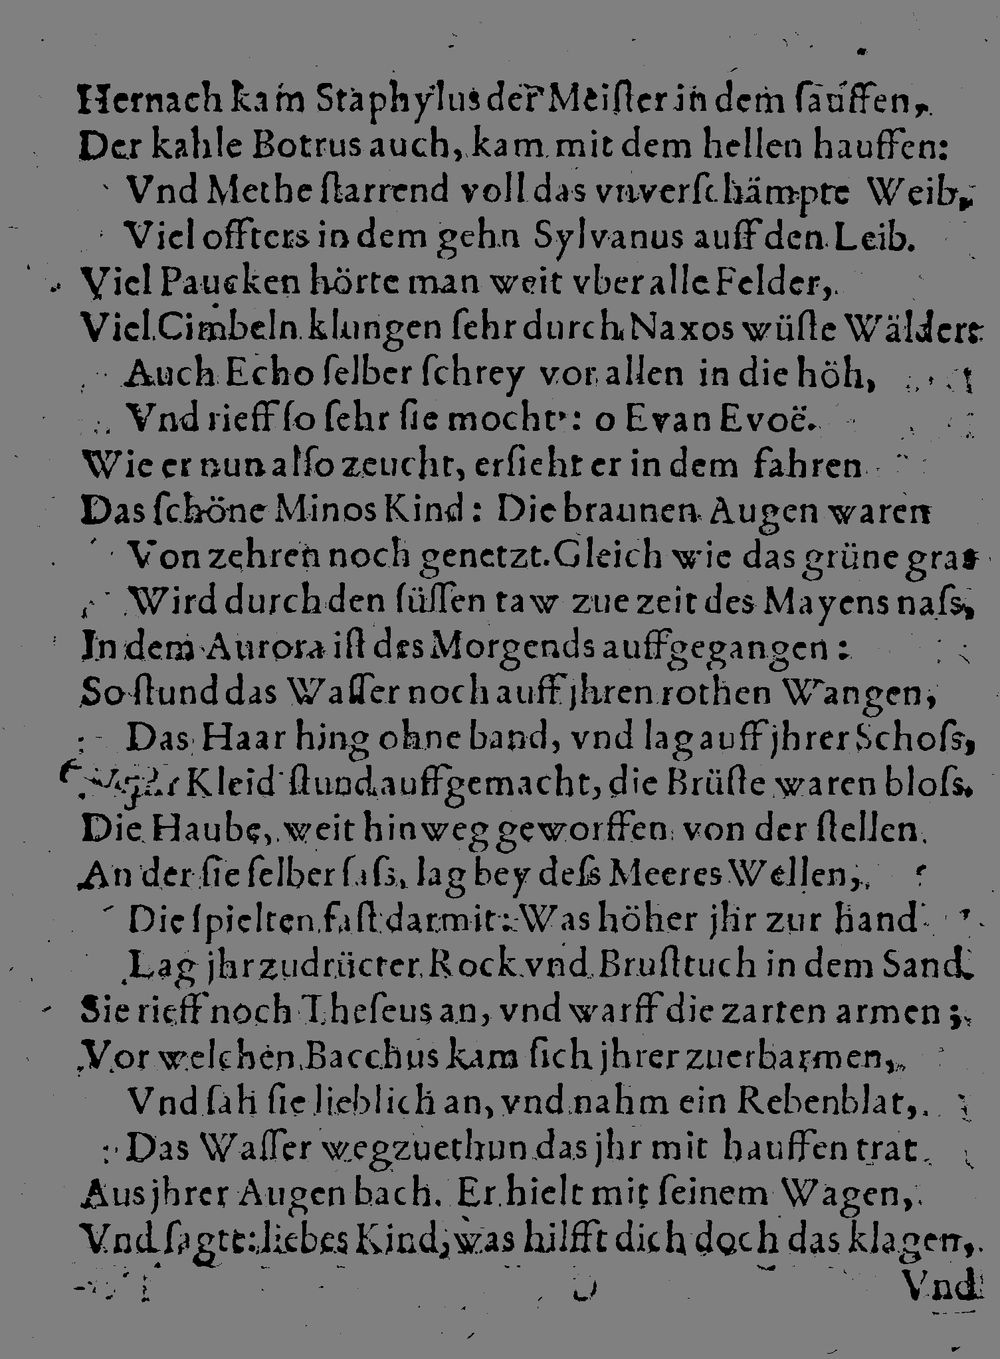 Hernach kam Staphylus der Meiſter in dem ſauffen,
Der kahle Botrus auch, kam mit dem hellen hauffen:
Vnd Methe ſtarrend voll das vnverſchämpte Weib,
Viel offters in dem gehn Sylvanus auff den Leib.
Viel Paucken hörte man weit vber alle Felder,
Viel Cimbeln klungen ſehr durch Naxos wüſte Wälder:
Auch Echo ſelber ſchrey vor allen in die höh,
Vnd rieff ſo ſehr ſie mocht': o Evan Evoë.
Wie er nun alſo zeucht, erſieht er in dem fahren
Das ſchöne Minos Kind: Die braunen Augen waren
Von zehren noch genetzt. Gleich wie das grüne gras
Wird durch den ſüſſen taw zue zeit des Mayens naſs,
In dem Aurora iſt des Morgends auffgegangen:
So ſtund das Waſſer noch auff jhren rothen Wangen,
Das Haar hing ohne band, vnd lag auff jhrer Schoſs,
Kleid ſtund auffgemacht, die Brüſte waren bloſs.
Die Haube, weit hinweg geworffen von der ſtellen
An der ſie ſelber ſaſs, lag bey deſs Meeres Wellen,
Die ſpielten faſt darmit: Was höher jhr zur hand
Lag jhr zudrückter Rock vnd Bruſttuch in dem Sand.
Sie rieff noch Theſeus an, vnd warff die zarten armen;
Vor welchen Bacchus kam ſich jhrer zuerbarmen,
Vnd ſah ſie lieblich an, vnd nahm ein Rebenblat,
Das Waſſer wegzuethun das jhr mit hauffen trat
Aus jhrer Augen bach. Er hielt mit ſeinem Wagen,
Vnd ſagte: liebes Kind, was hilfft dich doch das klagen,
Vnd